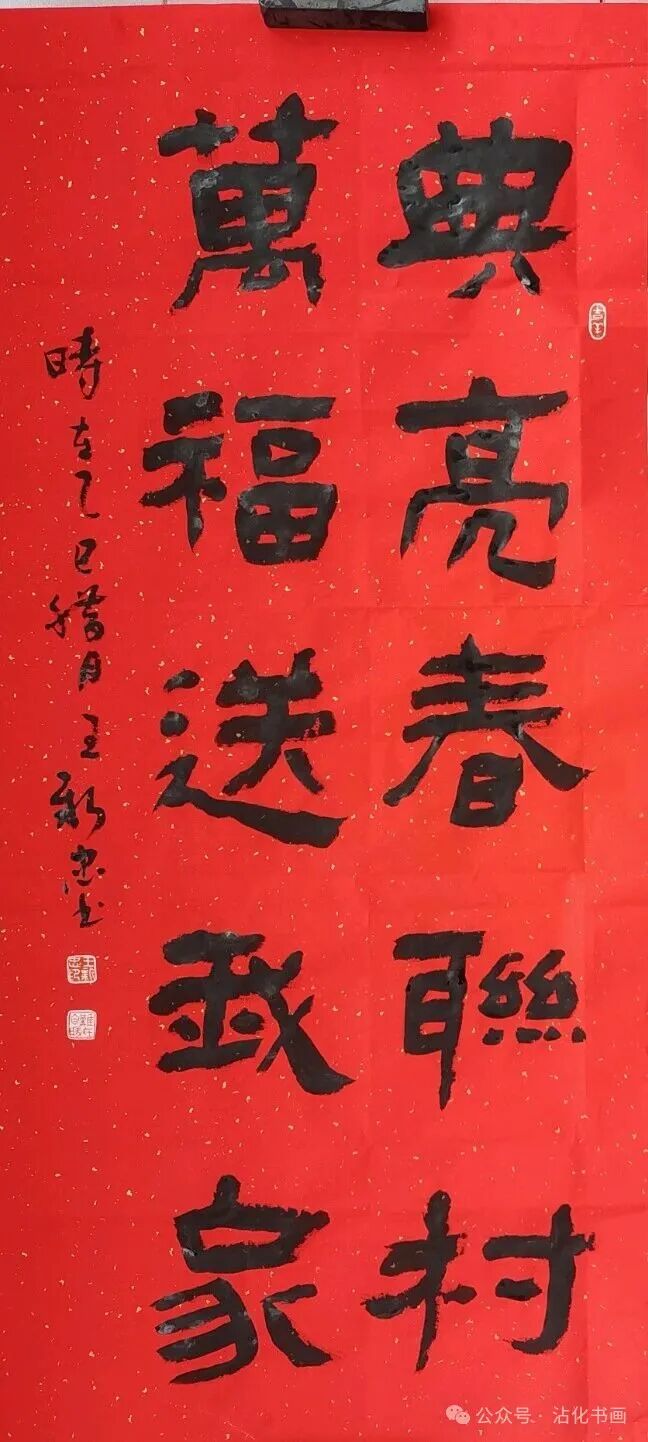 典亮春联村
萬福送我家
時在乙巳腊月王新忠书
公众号·沾化书画